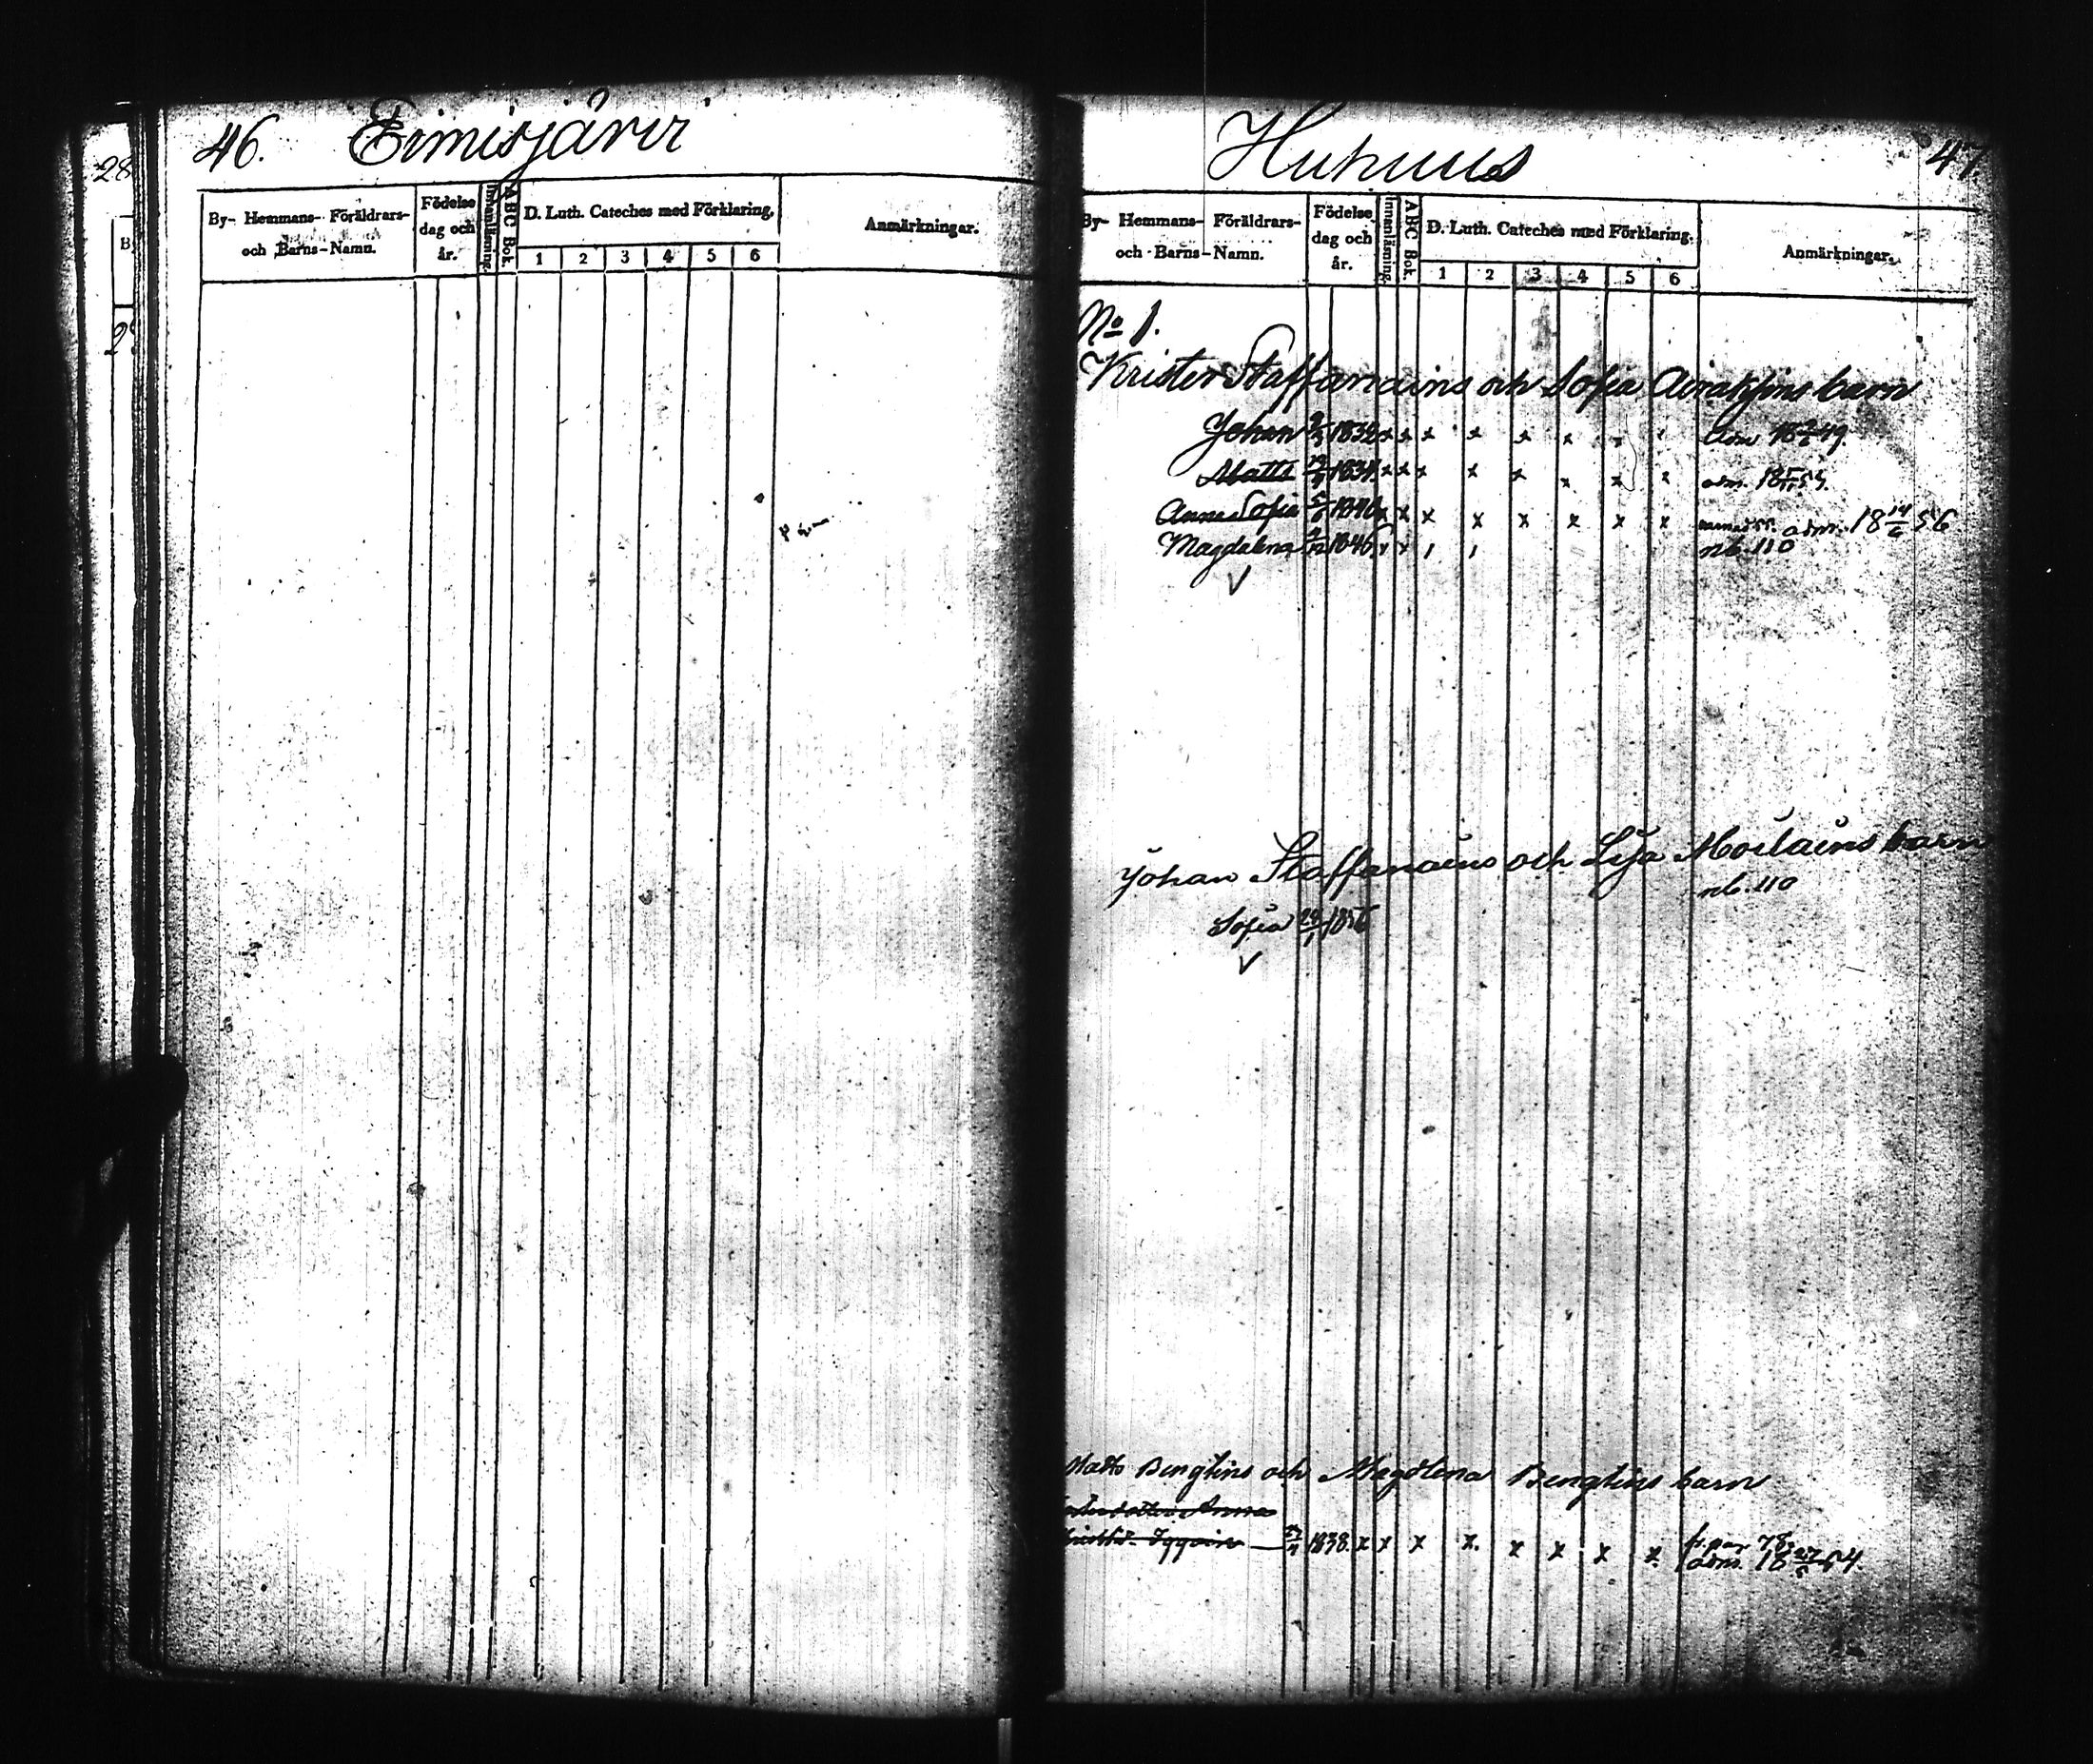 28
46. Eimisjärvi
By- Hemmans- Föräldrars- och Barns-Namn.
Födelse dag och år.
Innanläsning.
ABC Bok.
D. Luth. Cateches med Förklaring.
1 2 3 4 5 6
Anmärkningar.
Huhuus 47.
By- Hemmans- Föräldrars- och Barns-Namn.
Födelse dag och år.
Innanläsning.
ABC Bok.
D. Luth. Cateches med Förklaring.
1 2 3 4 5 6
Anmärkningar.
No 1.
Krister Staffanains och Sofia Airaksins barn
Johan 1832 x x x x x x adm 18 49.
Matts 1834 x x x x x x x x adm. 18
Anna Sofia 1840 x x x x x x x x adm. 18 14/6 56
Magdalena 1846 x x 1 1 nb. 110
Johan Staffanains och Lisa Moilains barn
nb. 110
Sofia 1856
Matts Bengtins och Magdlena Bengtins barn
Anna
1838. x x x x x x x x
adm. 18 54.